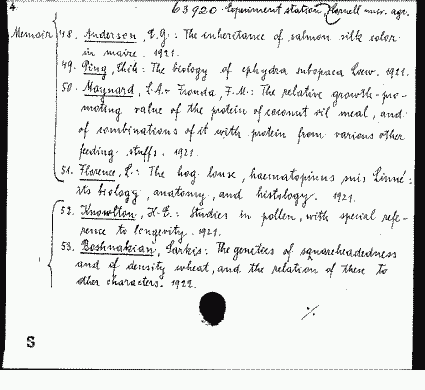 4. 63920. Experiment station, Cornell univ. agr.
Memoir 48. Anderson, E.G.: The inheritance of salmon silk color
in maize. 1921.
49. Ping, Chih: The biology of ephydra subopaca Loew. 1921.
50. Maynard, L.A. & Fronda, F.M.: The relative growth-pro-
moting value of the protein of coconut oil meal, and
of combinations of it with protein from various other
feeding stuffs. 1921.
51. Florence, L.: The hog louse, haematopinus suis Linné:
its biology, anatomy, and histology. 1921.
52. Knowlton, H.E.: Studies in pollen, with special refe-
rence to longevity. 1921.
53. Boshnakian, Sarkis: The genetics of squareheadedness
and of density wheat, and the relation of these to
other characters. 1922.
S